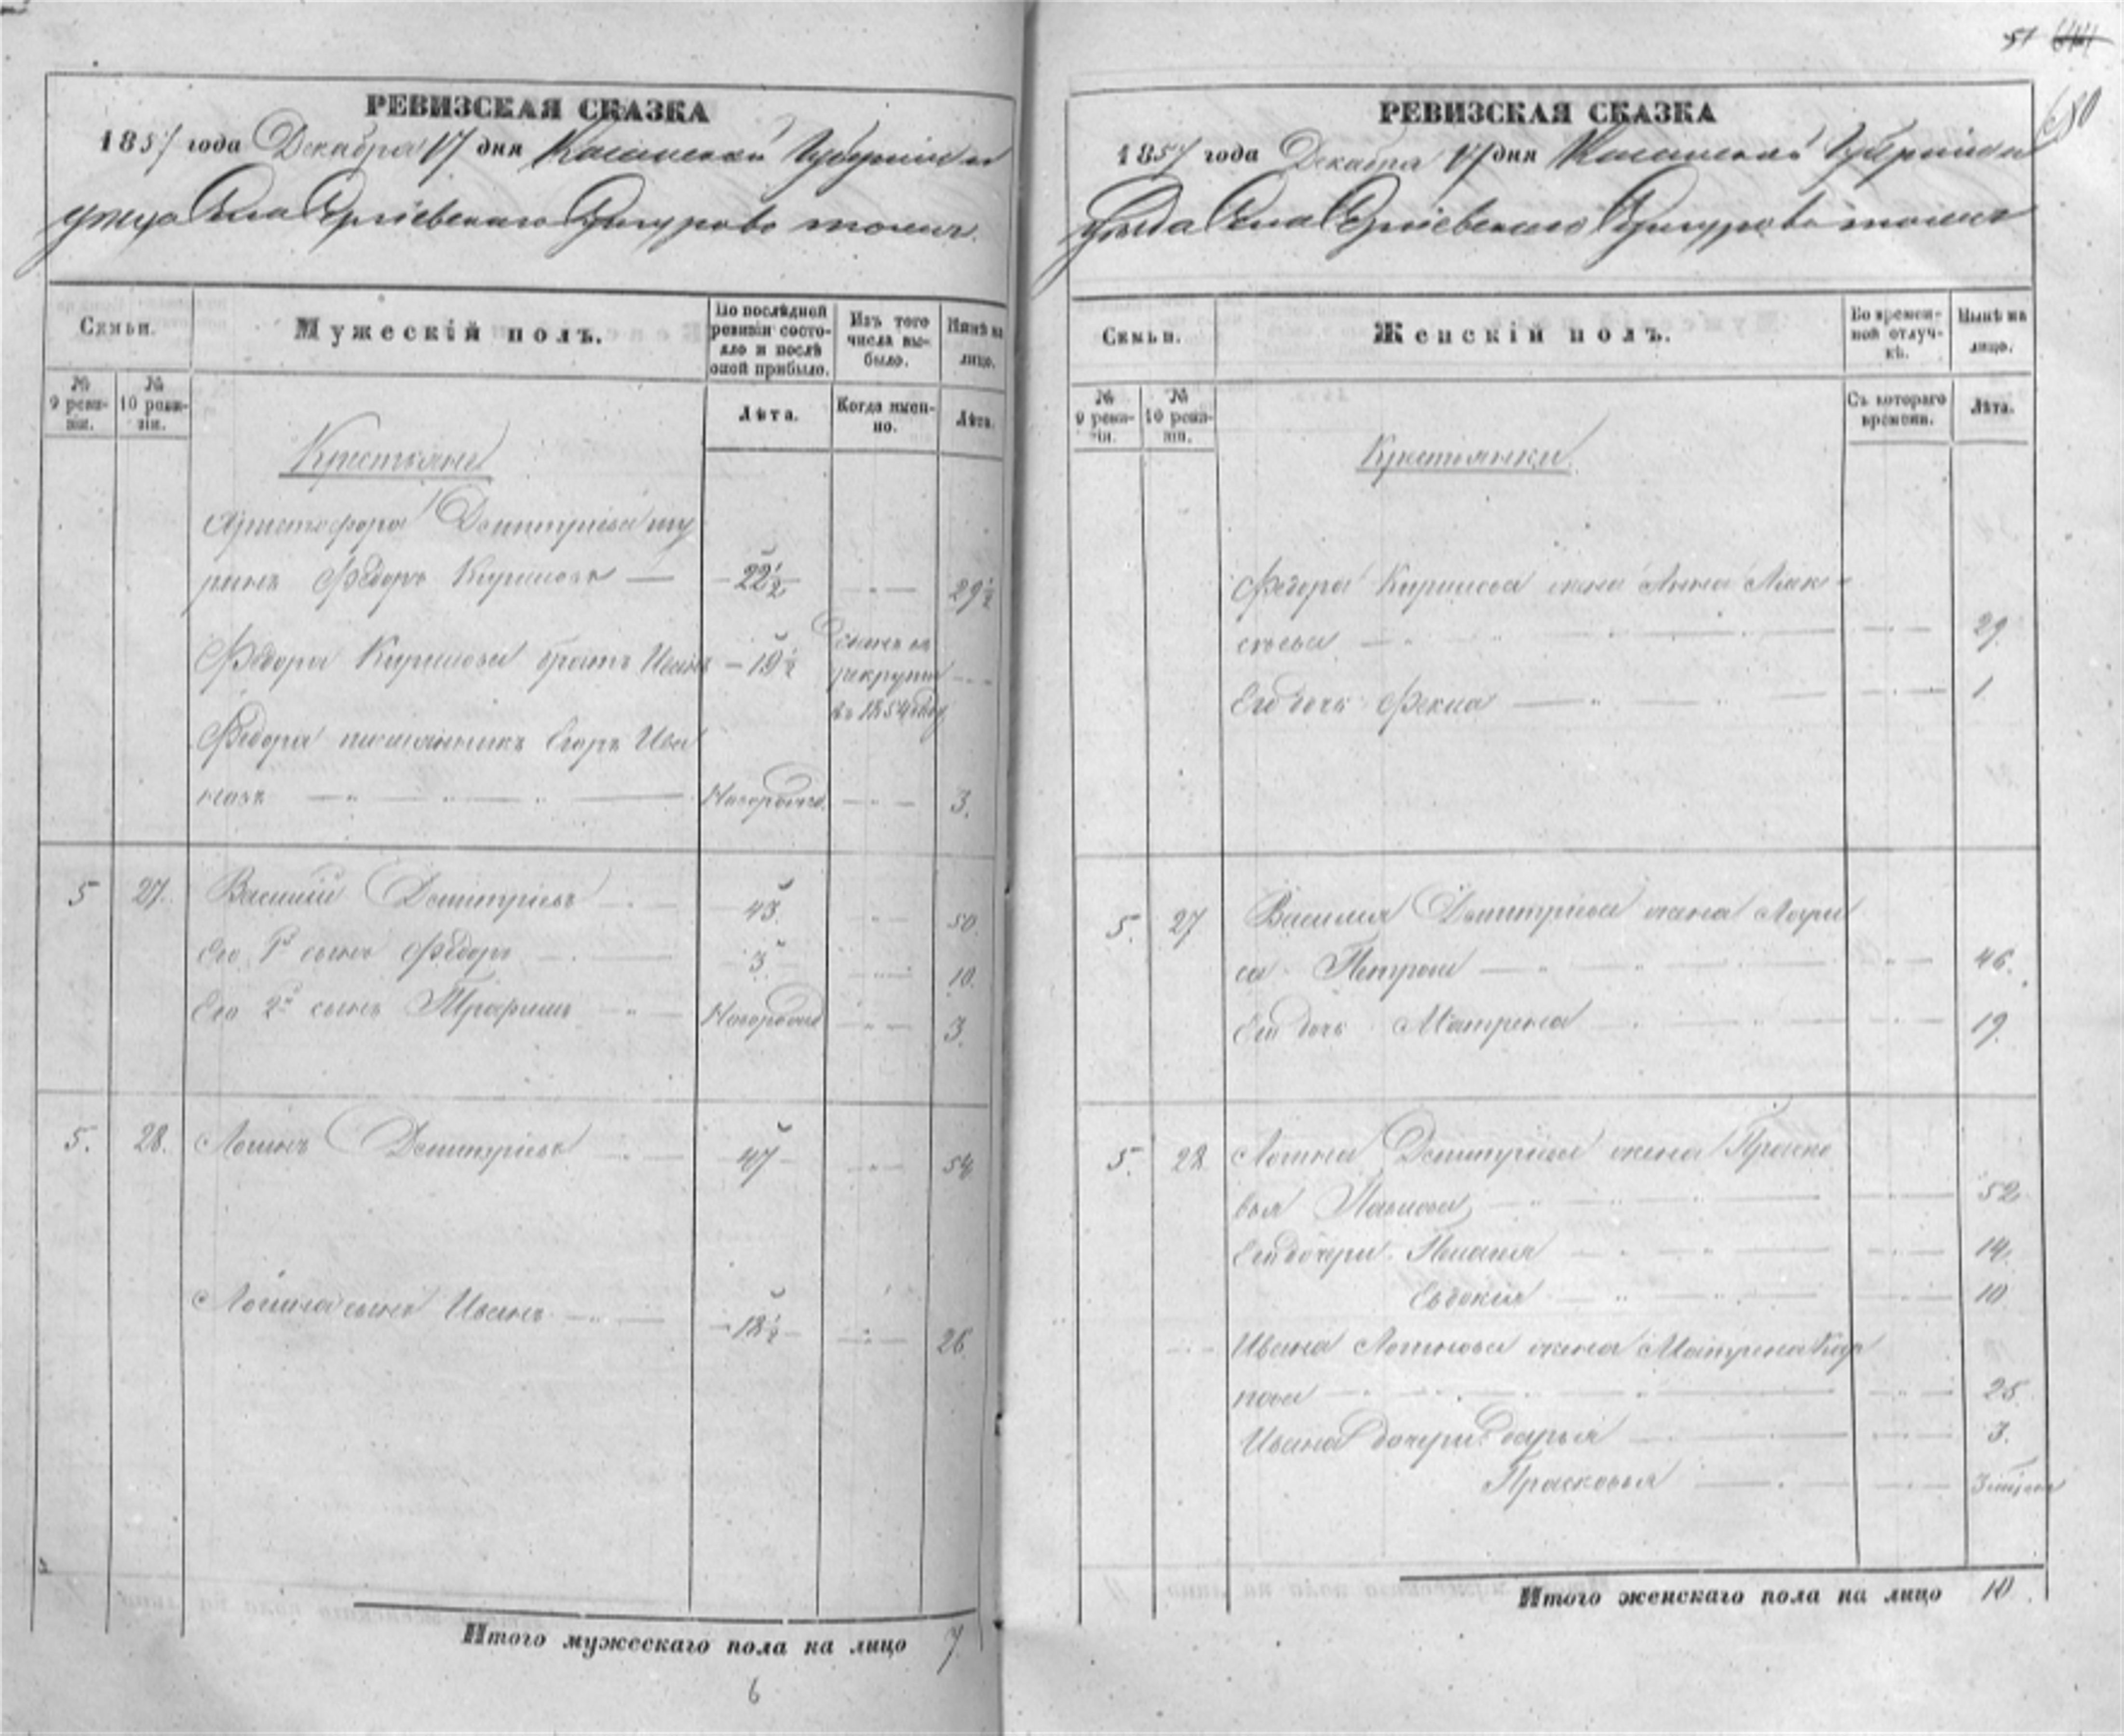 51
680
РЕВИЗСКАЯ СКАЗКА
1857 года Декабря 17 дня Казанской Губерніи и
уезда Села Сергіевскаго тожъ.
Семьи.
Мужескій полъ.
По послѣдней ревизіи состояло и послѣ оной прибыло.
Изъ того числа выбыло.
Нынѣ на лицо.
№ 9 ревизіи.
№ 10 ревизіи.
Лѣта.
Когда именно.
Лѣта.
Крестьяне
Христофора Дмитріева шу
ринъ Ѳедоръ Кириловъ 22½ 29½
Ѳедора Кирилова братъ Иванъ 19½
въ рекруты
въ 1854 году
Ѳедора племянникъ Егоръ Ива
новъ Новорожд. 3.
5 27. Василій Дмитріевъ 43. 50.
Его 1й сынъ Ѳедоръ 3 10.
Его 2й сынъ Трофимъ Новорожд 3.
5. 28. Логинъ Дмитріевъ 47 54
Логина сынъ Иванъ 18½ 26.
Итого мужескаго пола на лицо 7
6
РЕВИЗСКАЯ СКАЗКА
1857 года Декабря 17 дня Казанской Губерніи и
уѣзда Села Сергіевскаго тожъ
Семьи.
Женскій полъ.
Во временной отлучкѣ.
Нынѣ на лицо.
№ 9 ревизіи.
№ 10 ревизіи.
Съ котораго времени.
Лѣта.
Крестьянки
Ѳедора Кирилова жена Анна Алек-
сѣева 29.
Его дочь Фекла 1.
5. 27 Василья Дмитріева жена Лари
са Петрова 46.
Его дочь Матрена 19.
5. 28 Логина Дмитріева жена Праско
вья Павлова 52
Его дочери Пелагея 14.
Евдокія 10
Ивана Логинова жена Матрена Кар
пова 25.
Ивана дочери: Дарья 3.
Прасковья
Итого женскаго пола на лицо 10.